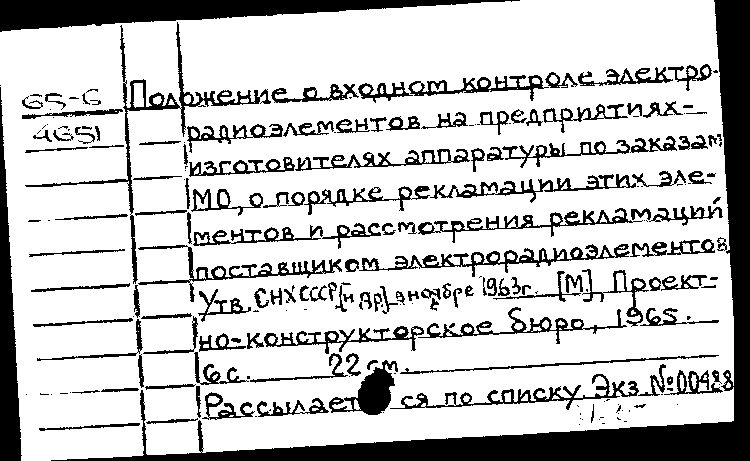 65-6
4651
Положение о входном контроле электро-
радиоэлементов на предприятиях-
изготовителях аппаратуры по заказам
МО, о порядке рекламации этих эле-
ментов и рассмотрения рекламаций
поставщиком электрорадиоэлементов
Утв. СНХ СССР [и др] в ноябре 1963г. [М], Проект-
но-конструкторское бюро, 1965.
6 с. 22 см.
Рассылает ся по списку. Экз. №00488